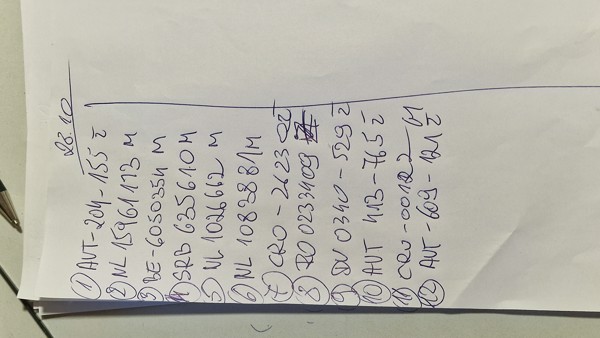 28.10
1 AVT-204-155 Ž
2 NL 15961173 M
3 DE-6050354 M
4 SRB 635610 M
5 NL 1026662 M
6 NL 1083881 M
7 CRO-2623 Ž
8 0233409
9 0340-529 Ž
10 AVT 413-765 Ž
11 CRO-00122 M
12 AVT-609-121 Ž